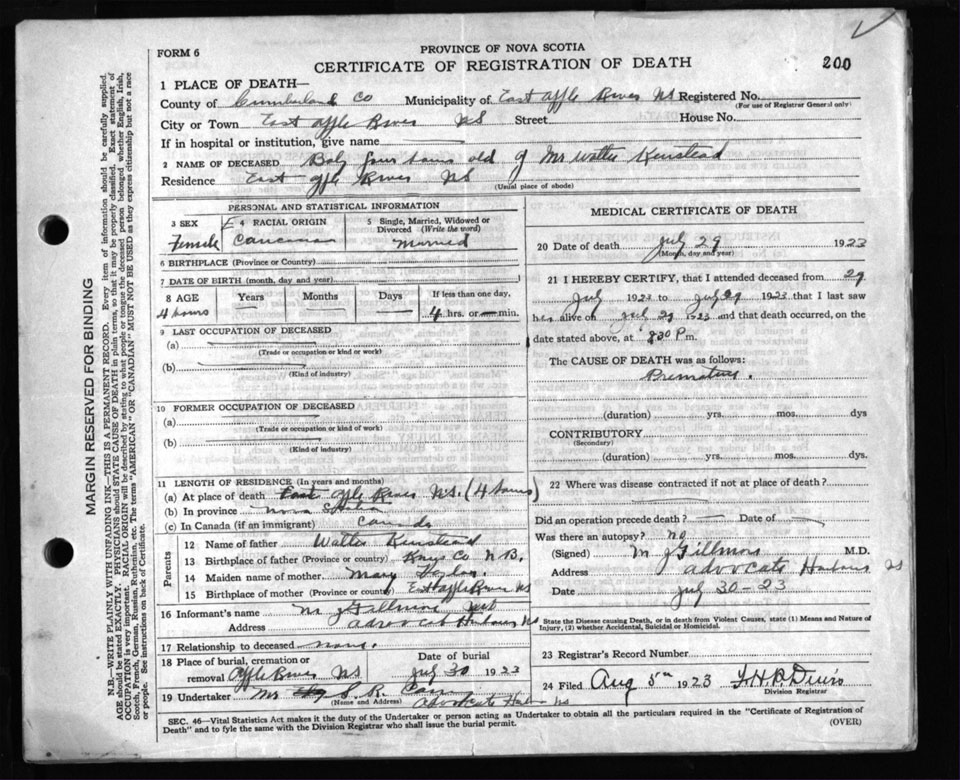 FORM 6
PROVINCE OF NOVA SCOTIA
CERTIFICATE OF REGISTRATION OF DEATH
200
1 PLACE OF DEATH—
County of Cumberland Co Municipality of East Apple River NS Registered No.
(For use of Registrar General only)
City or Town East Apple River NS Street House No.
If in hospital or institution, give name
2 NAME OF DECEASED Baby four hours old of Mr Walter
Residence East Apple River NS
(Usual place of abode)
PERSONAL AND STATISTICAL INFORMATION
3 SEX Female
4 RACIAL ORIGIN
5 Single, Married, Widowed or Divorced (Write the word) Married
6 BIRTHPLACE (Province or Country)
7 DATE OF BIRTH (month, day and year)
8 AGE Years Months Days If less than one day,
4 hours 4 hrs. or — min.
9 LAST OCCUPATION OF DECEASED
(a)
(Trade or occupation or kind or work)
(b)
(Kind of industry)
10 FORMER OCCUPATION OF DECEASED
(a)
(Trade or occupation or kind of work)
(b)
(Kind of industry)
11 LENGTH OF RESIDENCE (In years and months)
(a) At place of death East Apple River NS. (4 hours)
(b) In province Nova Scotia
(c) In Canada (if an immigrant) Canada
Parents
12 Name of father Walter
13 Birthplace of father (Province or Country) Kings Co N B.
14 Maiden name of mother Mary
15 Birthplace of mother (Province or Country) East Apple River NS
16 Informant's name M J Fillmore
Address Advocate Harbour NS
17 Relationship to deceased none.
18 Place of burial, cremation or removal Apple River NS
Date of burial July 30 1923
19 Undertaker Mr S. R.
(Name and Address) Advocate Harbour NS
MEDICAL CERTIFICATE OF DEATH
20 Date of death July 29 1923
(Month, day and year)
21 I HEREBY CERTIFY, that I attended deceased from 29
July 1923 to July 29 1923 that I last saw
her alive on July 29 1923 and that death occurred, on the
date stated above, at 830 P m.
The CAUSE OF DEATH was as follows:
Premature.
(duration) yrs. mos. dys
CONTRIBUTORY
(Secondary)
(duration) yrs. mos. dys.
22 Where was disease contracted if not at place of death?
Did an operation precede death? — Date of —
Was there an autopsy? no
(Signed) M J Fillmore M.D.
Address Advocate Harbour NS
Date July 30-23
State the Disease causing Death, or in death from Violent Causes, state (1) Means and Nature of
Injury, (2) whether Accidental, Suicidal or Homicidal.
23 Registrar's Record Number
24 Filed Aug 5th 1923
Division Registrar
SEC. 46—Vital Statistics Act makes it the duty of the Undertaker or person acting as Undertaker to obtain all the particulars required in the "Certificate of Registration of
Death" and to fyle the same with the Division Registrar who shall issue the burial permit.
(OVER)
MARGIN RESERVED FOR BINDING
N.B.—WRITE PLAINLY WITH UNFADING INK—THIS IS A PERMANENT RECORD. Every item of information should be carefully supplied.
AGE should be stated EXACTLY. PHYSICIANS should STATE CAUSE OF DEATH in plain terms, so that it may be properly classified. Exact statement of
OCCUPATION is very important. RACIAL ORIGIN will be described by stating to what people or tongue the deceased person belonged whether English, Irish,
Scotch, French, German, Russian, Ruthenian, etc. The terms "AMERICAN" or "CANADIAN" MUST NOT BE USED as they express citizenship but not a race
or people. See instructions on back of Certificate.